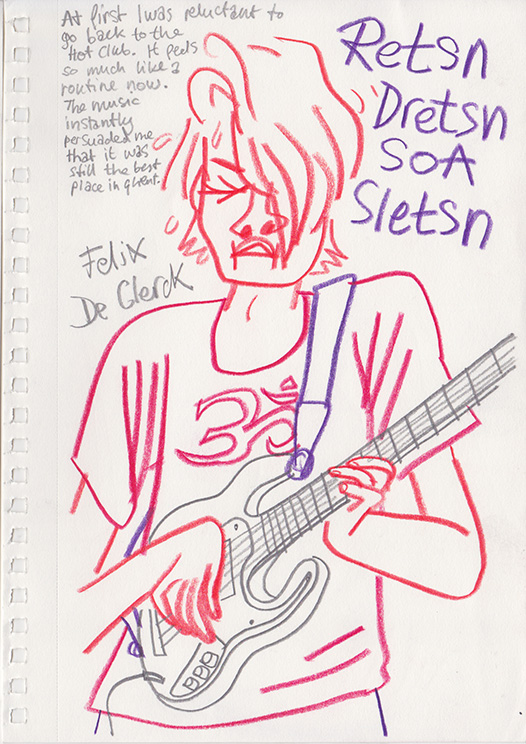 At first I was reluctant to
go back to the
Hot Club. It feels
so much like a
routine now.
The music
instantly
persuaded me
that it was
still the best
place in Ghent.
Retsn
Dretsn
SoA
Sletsn
Felix
De Clerck
ॐ